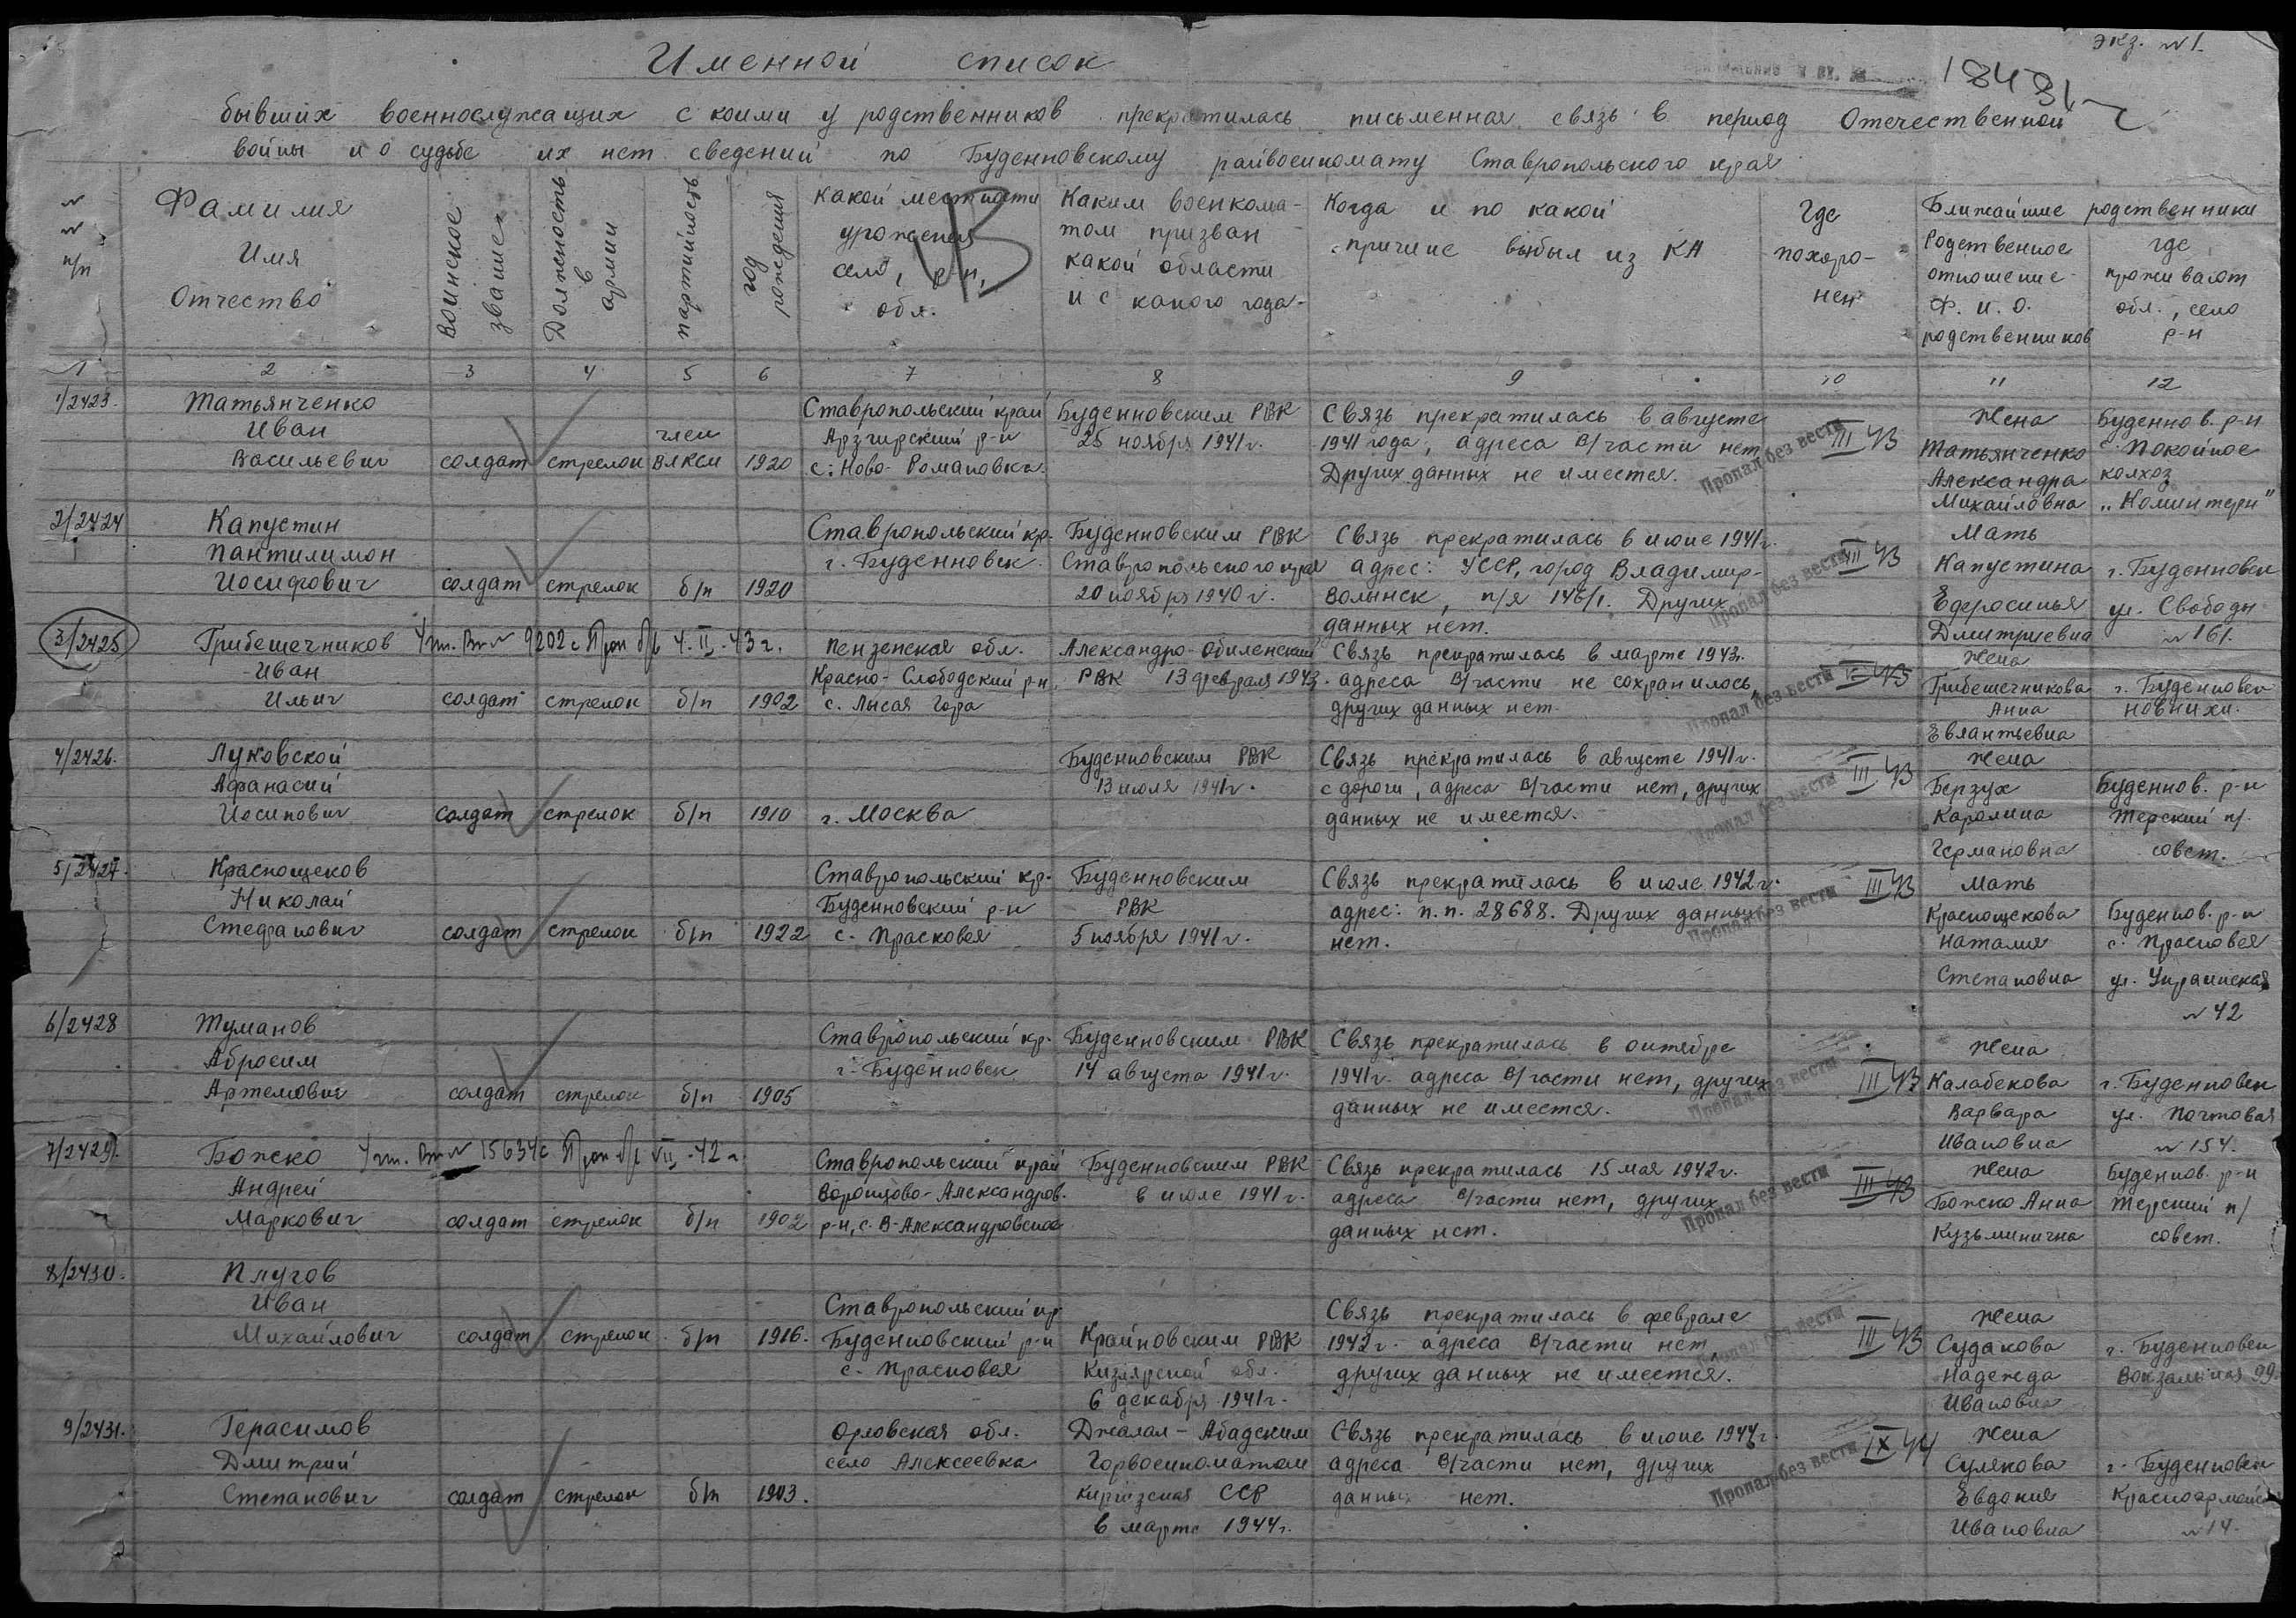 экз. №1.
18431
Именной список
бывших военнослужащих с коими у родственников прекратилась письменная связь в период Отечественной
войны и о судьбе их нет сведений по Буденновскому райвоенкомату Ставропольского края
№ № п/п
Фамилия Имя Отчество
Воинское звание
Должность в армии
партийность
год рождения
Какой местности урожения село, р-н, обл.
Каким военкома-
том призван
какой области
и с какого года
Когда и по какой
причине выбыл из КА
Где
похоро-
нен
Ближайшие родственники
Родственное
отношение
Ф. И. О.
родственников
где
проживают
обл., село
р-н
1 2 3 4 5 6 7 8 9 10 11 12
1/2423.
Татьянченко
Иван
Васильевич
солдат
стрелок
член
ВЛКСМ
1920
Ставропольский край
Арзгирский р-н
с. Ново-Романовка.
Буденновским РВК
25 ноября 1941г.
Связь прекратилась в августе
1941 года, адреса в/части нет
Других данных не имеется.
Пропал без вести
III 43
Жена
Татьянченко
Александра
Михайловна
Буденнов. р-н
с. Покойное
колхоз
„Коминтерн"
2/2424
Капустин
Пантилимон
Иосифович
солдат
стрелок
б/п
1920
Ставропольский кр.
г. Буденновск.
Буденновским РВК
Ставропольского края
20 ноября 1940 г.
Связь прекратилась в июне 1941г.
адрес: УССР, город Владимир-
Волынск, п/я 146/1. Других
данных нет.
Пропал без вести
III 43
Мать
Капустина
Ефросинья
Дмитриевна
г. Буденновск
ул. Свободы
№ 161.
3/2425
Грибешечников
Иван
Ильич
Ут. Вх № 9202с Проп б/в 4.II.43г.
солдат
стрелок
б/п
1902
Пензенская обл.
Красно-Слободский р-н
с. Лысая Гора
Александро-Обиленский
РВК 13 февраля 1943.
Связь прекратилась в марте 1943.
адреса в/части не сохранилось,
других данных нет.
Пропал без вести
Жена
Грибешечникова
Анна
Евлантьевна
г. Буденновск
4/2426.
Луковской
Афанасий
Иосипович
солдат
стрелок
б/п
1910
г. Москва
Буденновским РВК
13 июля 1941г.
Связь прекратилась в августе 1941г.
с дороги, адреса в/части нет, других
данных не имеется.
Пропал без вести
III 43
Жена
Берзух
Каролина
Германовна
Буденнов. р-н
Терский п/
совет.
5/2427.
Краснощеков
Николай
Стефанович
солдат
стрелок
б/п
1922
Ставропольский кр.
Буденновский р-н
с. Прасковея
Буденновским
РВК
5 ноября 1941г.
Связь прекратилась в июле 1942г.
адрес: п.п. 28688. Других данных
нет.
Пропал без вести
III 43
Мать
Краснощекова
Наталия
Степановна
Буденнов. р-н
с. Прасковея
ул. Украинская
№ 42
6/2428
Туманов
Абросим
Артемович
солдат
стрелок
б/п
1905
Ставропольский кр.
г. Буденновск
Буденновским РВК
14 августа 1941г.
Связь прекратилась в октябре
1941г. адреса в/части нет, других
данных не имеется.
Пропал без вести
III 43
Жена
Калабекова
Варвара
Ивановна
г. Буденновск
ул. Почтовая
№ 154.
7/2429.
Божско
Андрей
Маркович
Ут. Вх № 15634с Проп б/в VII-42г.
солдат
стрелок
б/п
1902
Ставропольский край
Воронцово-Александров.
р-н, с. В-Александровское
Буденновским РВК
в июле 1941г.
Связь прекратилась 15 мая 1942г.
адреса в/части нет, других
данных нет.
Пропал без вести
III 43
Жена
Божско Анна
Кузьминична
Буденнов. р-н
Терский п/
совет.
8/2430.
Плугов
Иван
Михайлович
солдат
стрелок
б/п
1916.
Ставропольский кр
Буденновский р-н
с. Прасковея
Крайновским РВК
Кизлярской обл.
6 декабря 1941г.
Связь прекратилась в феврале
1942г. адреса в/части нет,
других данных не имеется.
Пропал без вести
III 43
Жена
Судакова
Надежда
Ивановна
г. Буденновск
Вокзальная 99.
9/2431.
Герасимов
Дмитрий
Степанович
солдат
стрелок
б/п
1903.
Орловская обл.
село Алексеевка
Джалал-Абадским
Горвоенкоматом
Киргизская ССР
в марте 1944г.
Связь прекратилась в июне 1944г.
адреса в/части нет, других
данных нет.
Пропал без вести
IX 44
Жена
Сулякова
Евдокия
Ивановна
г. Буденновск
Красноармейск
№ 14.